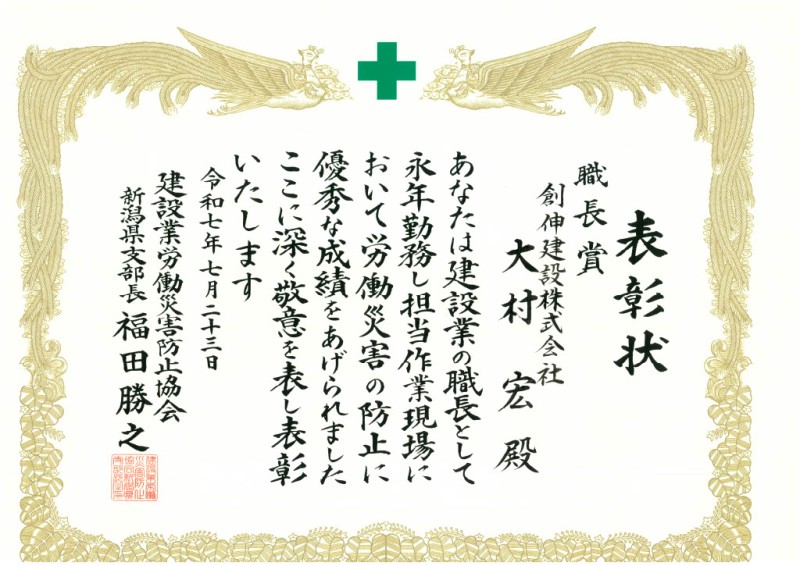 表彰状
職長賞
創伸建設株式会社
大村 宏 殿
あなたは建設業の職長として
永年勤務し担当作業現場に
おいて労働災害の防止に
優秀な成績をあげられました
ここに深く敬意を表し表彰
いたします
令和七年七月二十三日
建設業労働災害防止協会
新潟県支部長 福田勝之